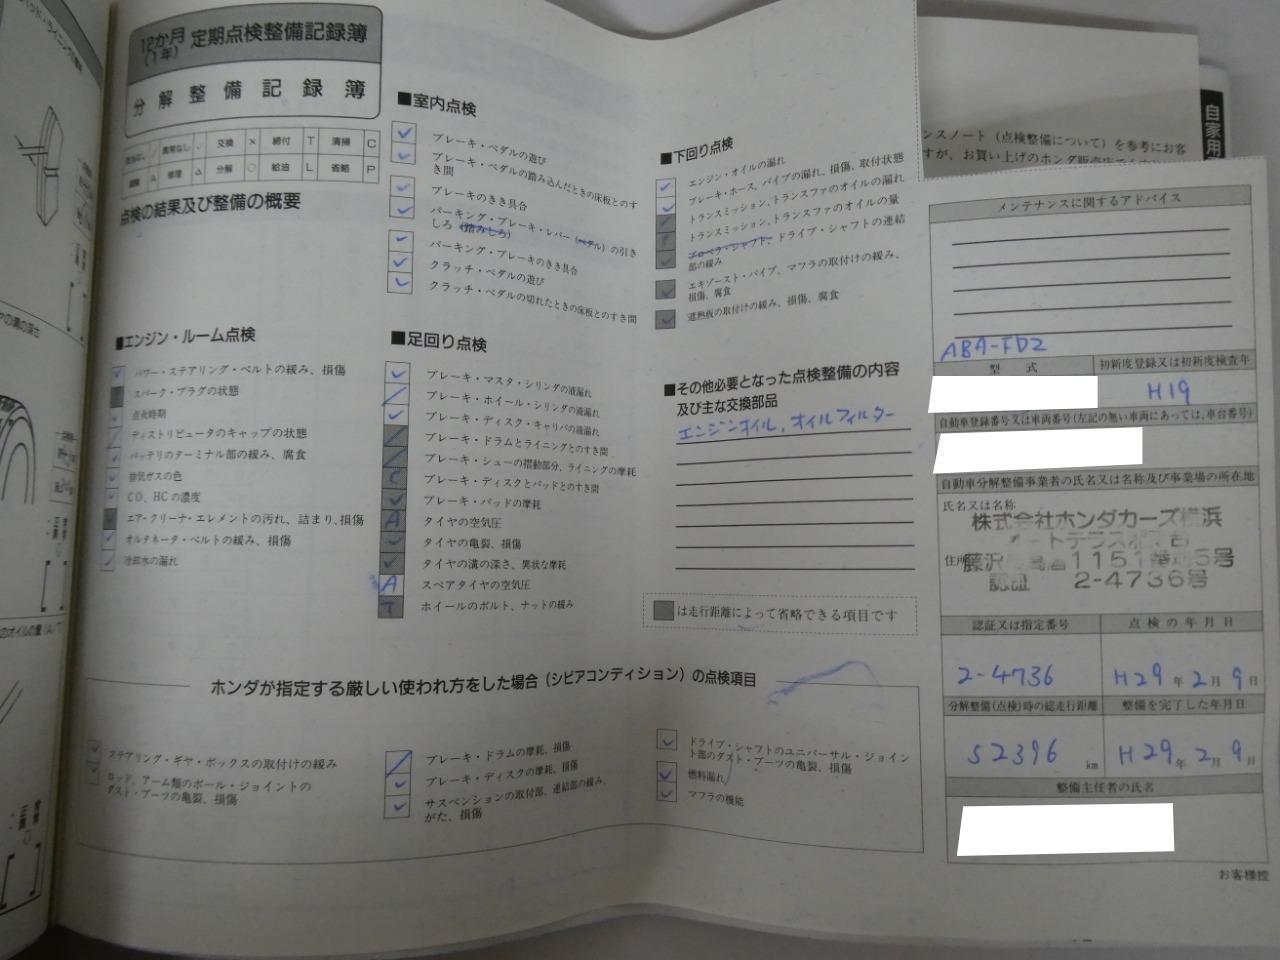 12か月
(1年)
定期点検整備記録簿
分解整備記録簿
交換 × 締付 T 清掃 C
分解 ○ 給油 L 省略 P
点検の結果及び整備の概要
■エンジン・ルーム点検
パワー・ステアリング・ベルトの緩み、損傷
スパーク・プラグの状態
点火時期
ディストリビュータのキャップの状態
バッテリのターミナル部の緩み、腐食
排気ガスの色
CO、HCの濃度
エア・クリーナ・エレメントの汚れ、詰まり、損傷
オルタネータ・ベルトの緩み、損傷
冷却水の漏れ
■室内点検
ブレーキ・ペダルの遊び
ブレーキ・ペダルの踏み込んだときの床板とのす
き間
ブレーキのきき具合
パーキング・ブレーキ・レバー(ペダル)の引き
しろ(踏みしろ)
パーキング・ブレーキのきき具合
クラッチ・ペダルの遊び
クラッチ・ペダルの切れたときの床板とのすき間
■足回り点検
ブレーキ・マスタ・シリンダの液漏れ
ブレーキ・ホイール・シリンダの液漏れ
ブレーキ・ディスク・キャリパの液漏れ
ブレーキ・ドラムとライニングとのすき間
ブレーキ・シューの摺動部分、ライニングの摩耗
ブレーキ・ディスクとパッドとのすき間
ブレーキ・パッドの摩耗
A タイヤの空気圧
タイヤの亀裂、損傷
タイヤの溝の深さ、異状な摩耗
A スペアタイヤの空気圧
T ホイールのボルト、ナットの緩み
■下回り点検
エンジン・オイルの漏れ
ブレーキ・ホース、パイプの漏れ、損傷、取付状態
トランスミッション、トランスファのオイルの漏れ
トランスミッション、トランスファのオイルの量
プロペラ・シャフト、ドライブ・シャフトの連結
部の緩み
エキゾースト・パイプ、マフラの取付けの緩み、
損傷、腐食
遮熱板の取付けの緩み、損傷、腐食
■その他必要となった点検整備の内容
及び主な交換部品
エンジンオイル、オイルフィルター
は走行距離によって省略できる項目です
ホンダが指定する厳しい使われ方をした場合(シビアコンディション)の点検項目
ステアリング・ギヤ・ボックスの取付けの緩み
ロッド、アーム類のボール・ジョイントの
ダスト・ブーツの亀裂、損傷
ブレーキ・ドラムの摩耗、損傷
ブレーキ・ディスクの摩耗、損傷
サスペンションの取付部、連結部の緩み、
がた、損傷
ドライブ・シャフトのユニバーサル・ジョイン
ト部のダスト・ブーツの亀裂、損傷
燃料漏れ
マフラの機能
自家用
ンスノート(点検整備について)を参考にお客
すが、お買い上げのホンダ販売店
メンテナンスに関するアドバイス
ABA-FD2
型式 初新度登録又は初新度検査年
H19
自動車登録番号又は車両番号(左記の無い車両にあっては、車台番号)
自動車分解整備事業者の氏名又は名称及び事業場の所在地
氏名又は名称
株式会社ホンダカーズ横浜
オートテラス
住所
認証 2-4736号
認証又は指定番号 点検の年月日
2-4736 H29年2月9日
分解整備(点検)時の総走行距離 整備を完了した年月日
52396 km H29年2月9日
整備主任者の氏名
お客様控